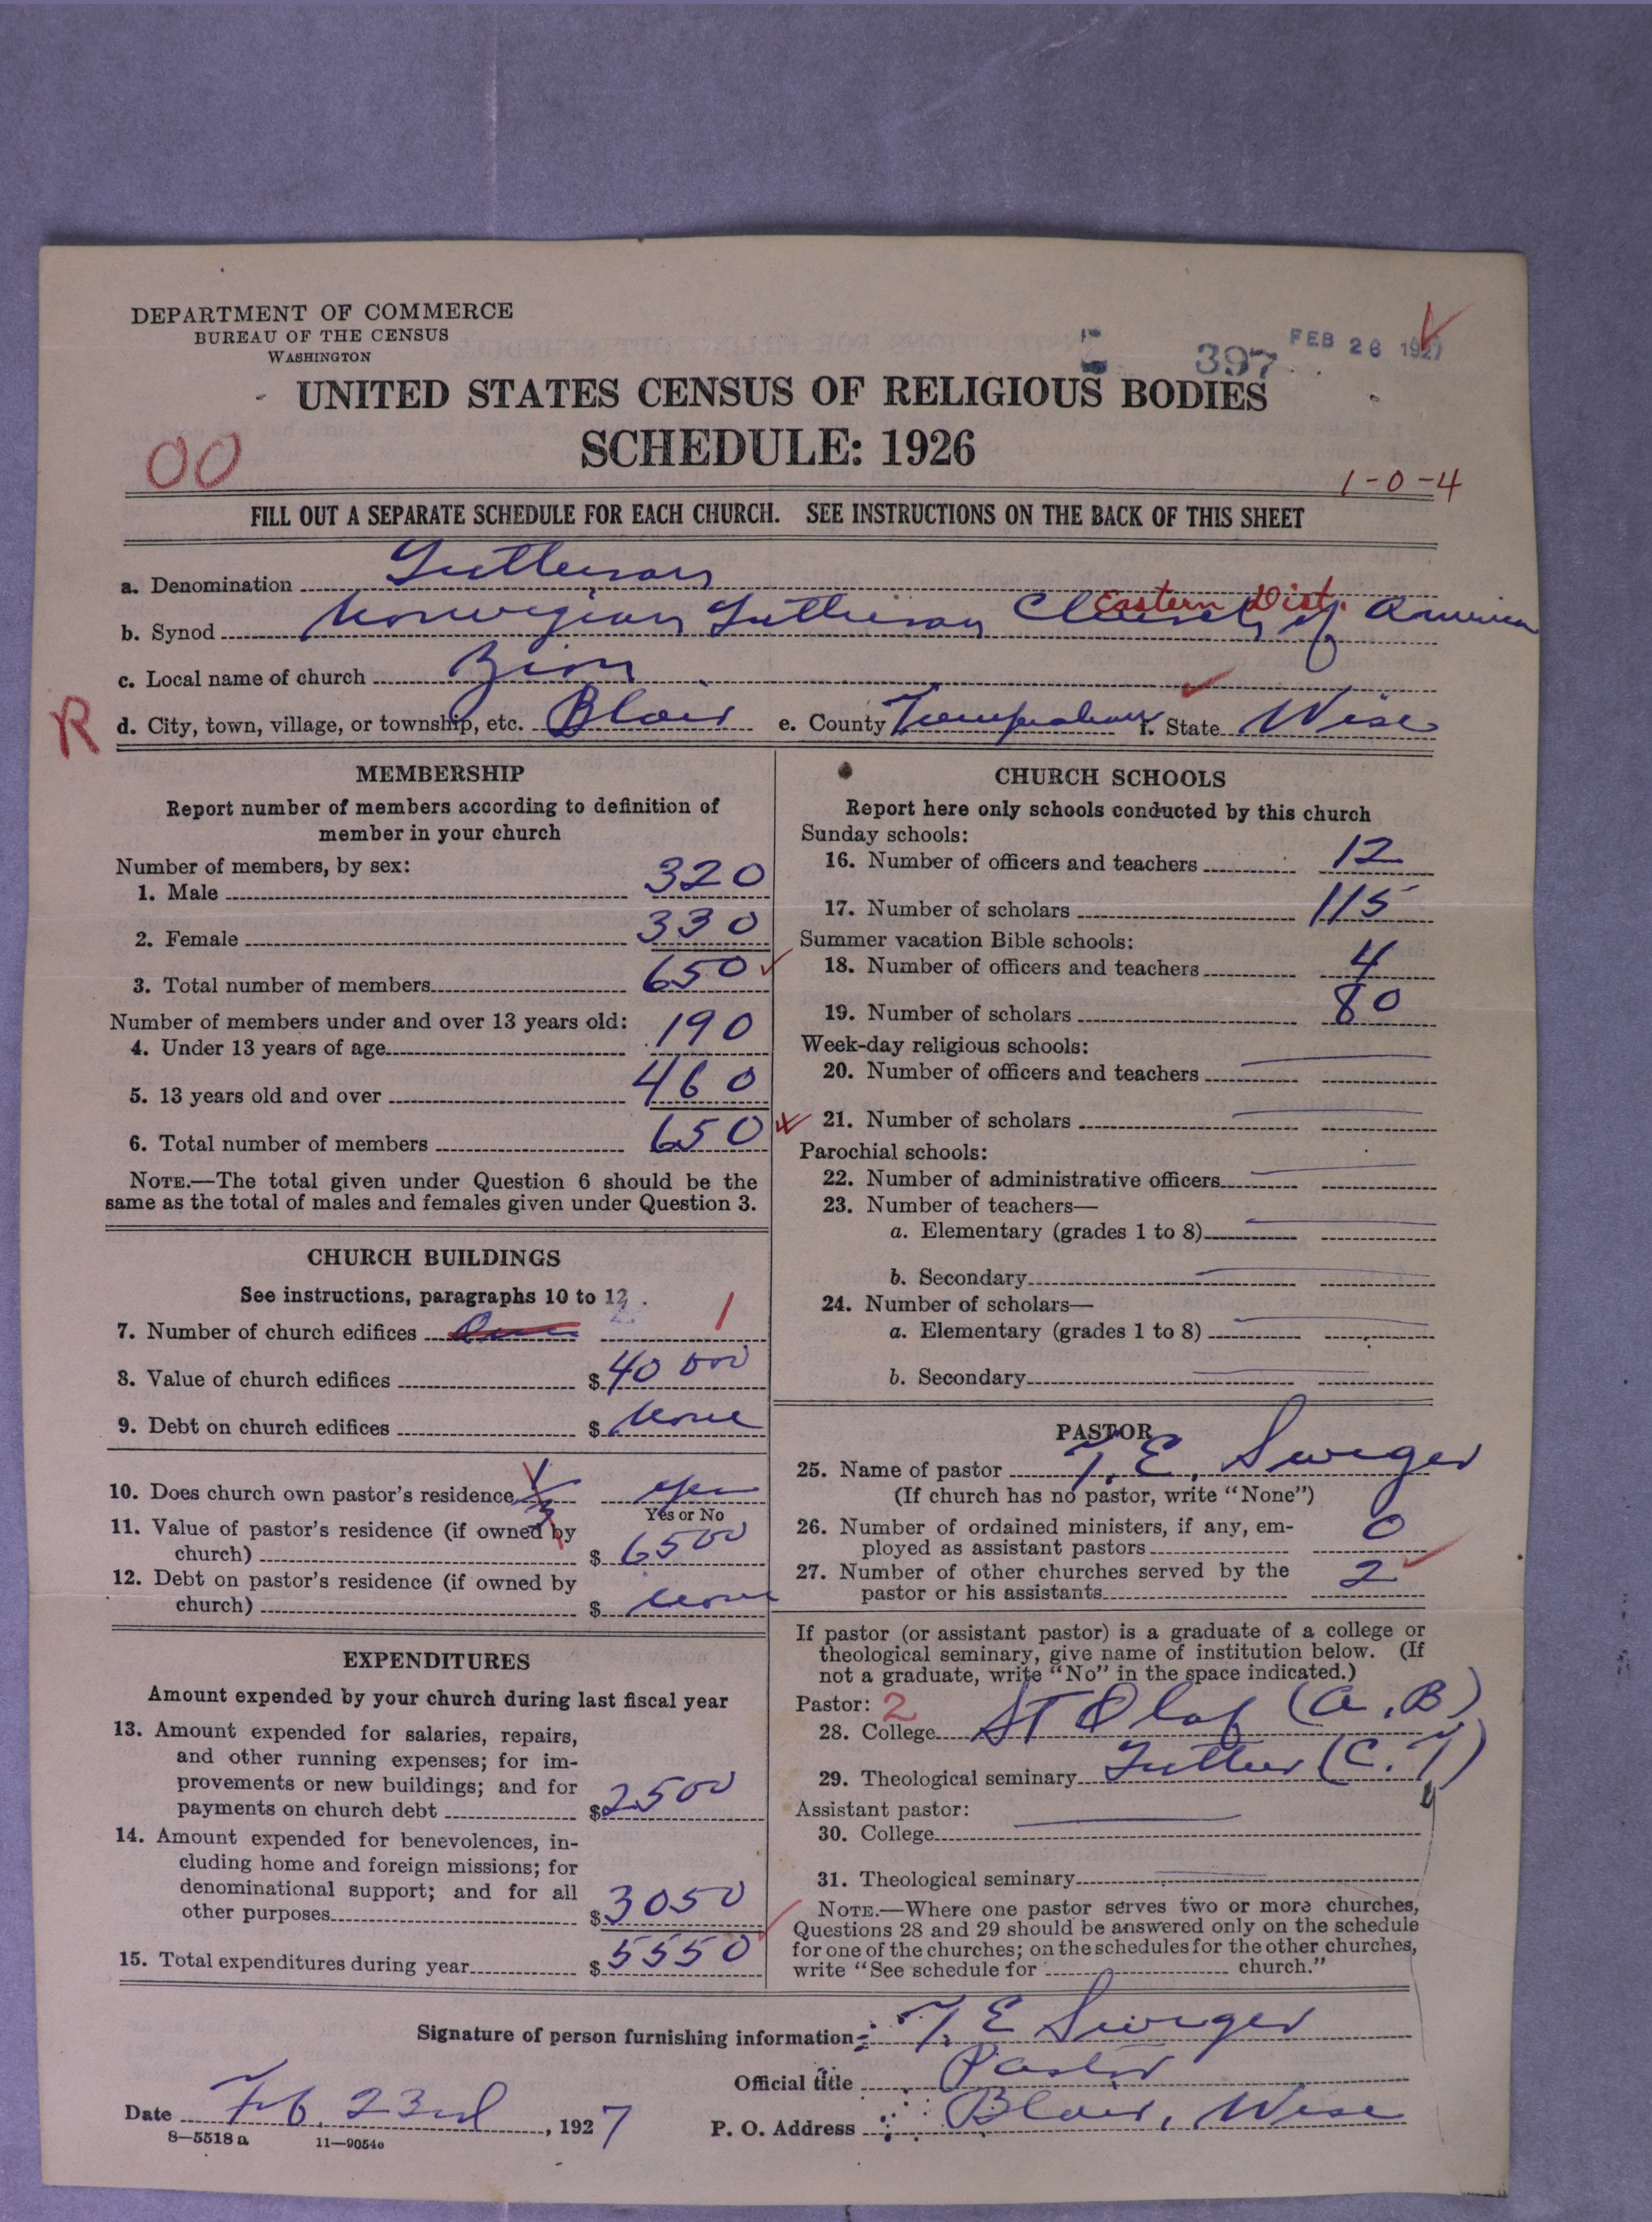 DEPARTMENT OF COMMERCE
BUREAU OF THE CENSUS
WASHINGTON
397
FEB 26 1927
UNITED STATES CENSUS OF RELIGIOUS BODIES
SCHEDULE: 1926
00
1-0-4
FILL OUT A SEPARATE SCHEDULE FOR EACH CHURCH. SEE INSTRUCTIONS ON THE BACK OF THIS SHEET
a. Denomination Lutheran
Eastern Dist.
b. Synod Norwegian Lutheran Church of America
c. Local name of church Zion
R
d. City, town, village, or township, etc. Blair e. County Trempealeau f. State Wisc
MEMBERSHIP
Report number of members according to definition of
member in your church
Number of members, by sex:
1. Male 320
2. Female 330
3. Total number of members 650
Number of members under and over 13 years old:
4. Under 13 years of age 190
5. 13 years old and over 460
6. Total number of members 650
NOTE.—The total given under Question 6 should be the
same as the total of males and females given under Question 3.
CHURCH BUILDINGS
See instructions, paragraphs 10 to 12
7. Number of church edifices One 1
8. Value of church edifices $ 40 000
9. Debt on church edifices $ None
10. Does church own pastor's residence 1/3 yes
Yes or No
11. Value of pastor's residence (if owned by
church) $ 6500
12. Debt on pastor's residence (if owned by
church) $ None
EXPENDITURES
Amount expended by your church during last fiscal year
13. Amount expended for salaries, repairs,
and other running expenses; for im-
provements or new buildings; and for
payments on church debt $ 2500
14. Amount expended for benevolences, in-
cluding home and foreign missions; for
denominational support; and for all
other purposes $ 3050
15. Total expenditures during year $ 5550
CHURCH SCHOOLS
Report here only schools conducted by this church
Sunday schools:
16. Number of officers and teachers 12
17. Number of scholars 115
Summer vacation Bible schools:
18. Number of officers and teachers 4
19. Number of scholars 80
Week-day religious schools:
20. Number of officers and teachers
21. Number of scholars
Parochial schools:
22. Number of administrative officers
23. Number of teachers—
a. Elementary (grades 1 to 8)
b. Secondary
24. Number of scholars—
a. Elementary (grades 1 to 8)
b. Secondary
PASTOR
25. Name of pastor T. E. Sweger
(If church has no pastor, write "None")
26. Number of ordained ministers, if any, em-
ployed as assistant pastors 0
27. Number of other churches served by the
pastor or his assistants 2
If pastor (or assistant pastor) is a graduate of a college or
theological seminary, give name of institution below. (If
not a graduate, write "No" in the space indicated.)
Pastor: 2
28. College St Olaf (A.B)
29. Theological seminary Luther (C.T)
Assistant pastor:
30. College
31. Theological seminary
NOTE.—Where one pastor serves two or more churches,
Questions 28 and 29 should be answered only on the schedule
for one of the churches; on the schedules for the other churches,
write "See schedule for church."
Signature of person furnishing information T. E Sweger
Official title Pastor
Date Feb. 23rd, 1927 P. O. Address Blair, Wisc
8—5518 a 11—9054c